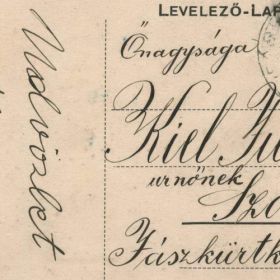 LEVELEZŐ-LAP
Őnagysága
Kiel
urnőnek
Jászkürtk
Üdvözlet